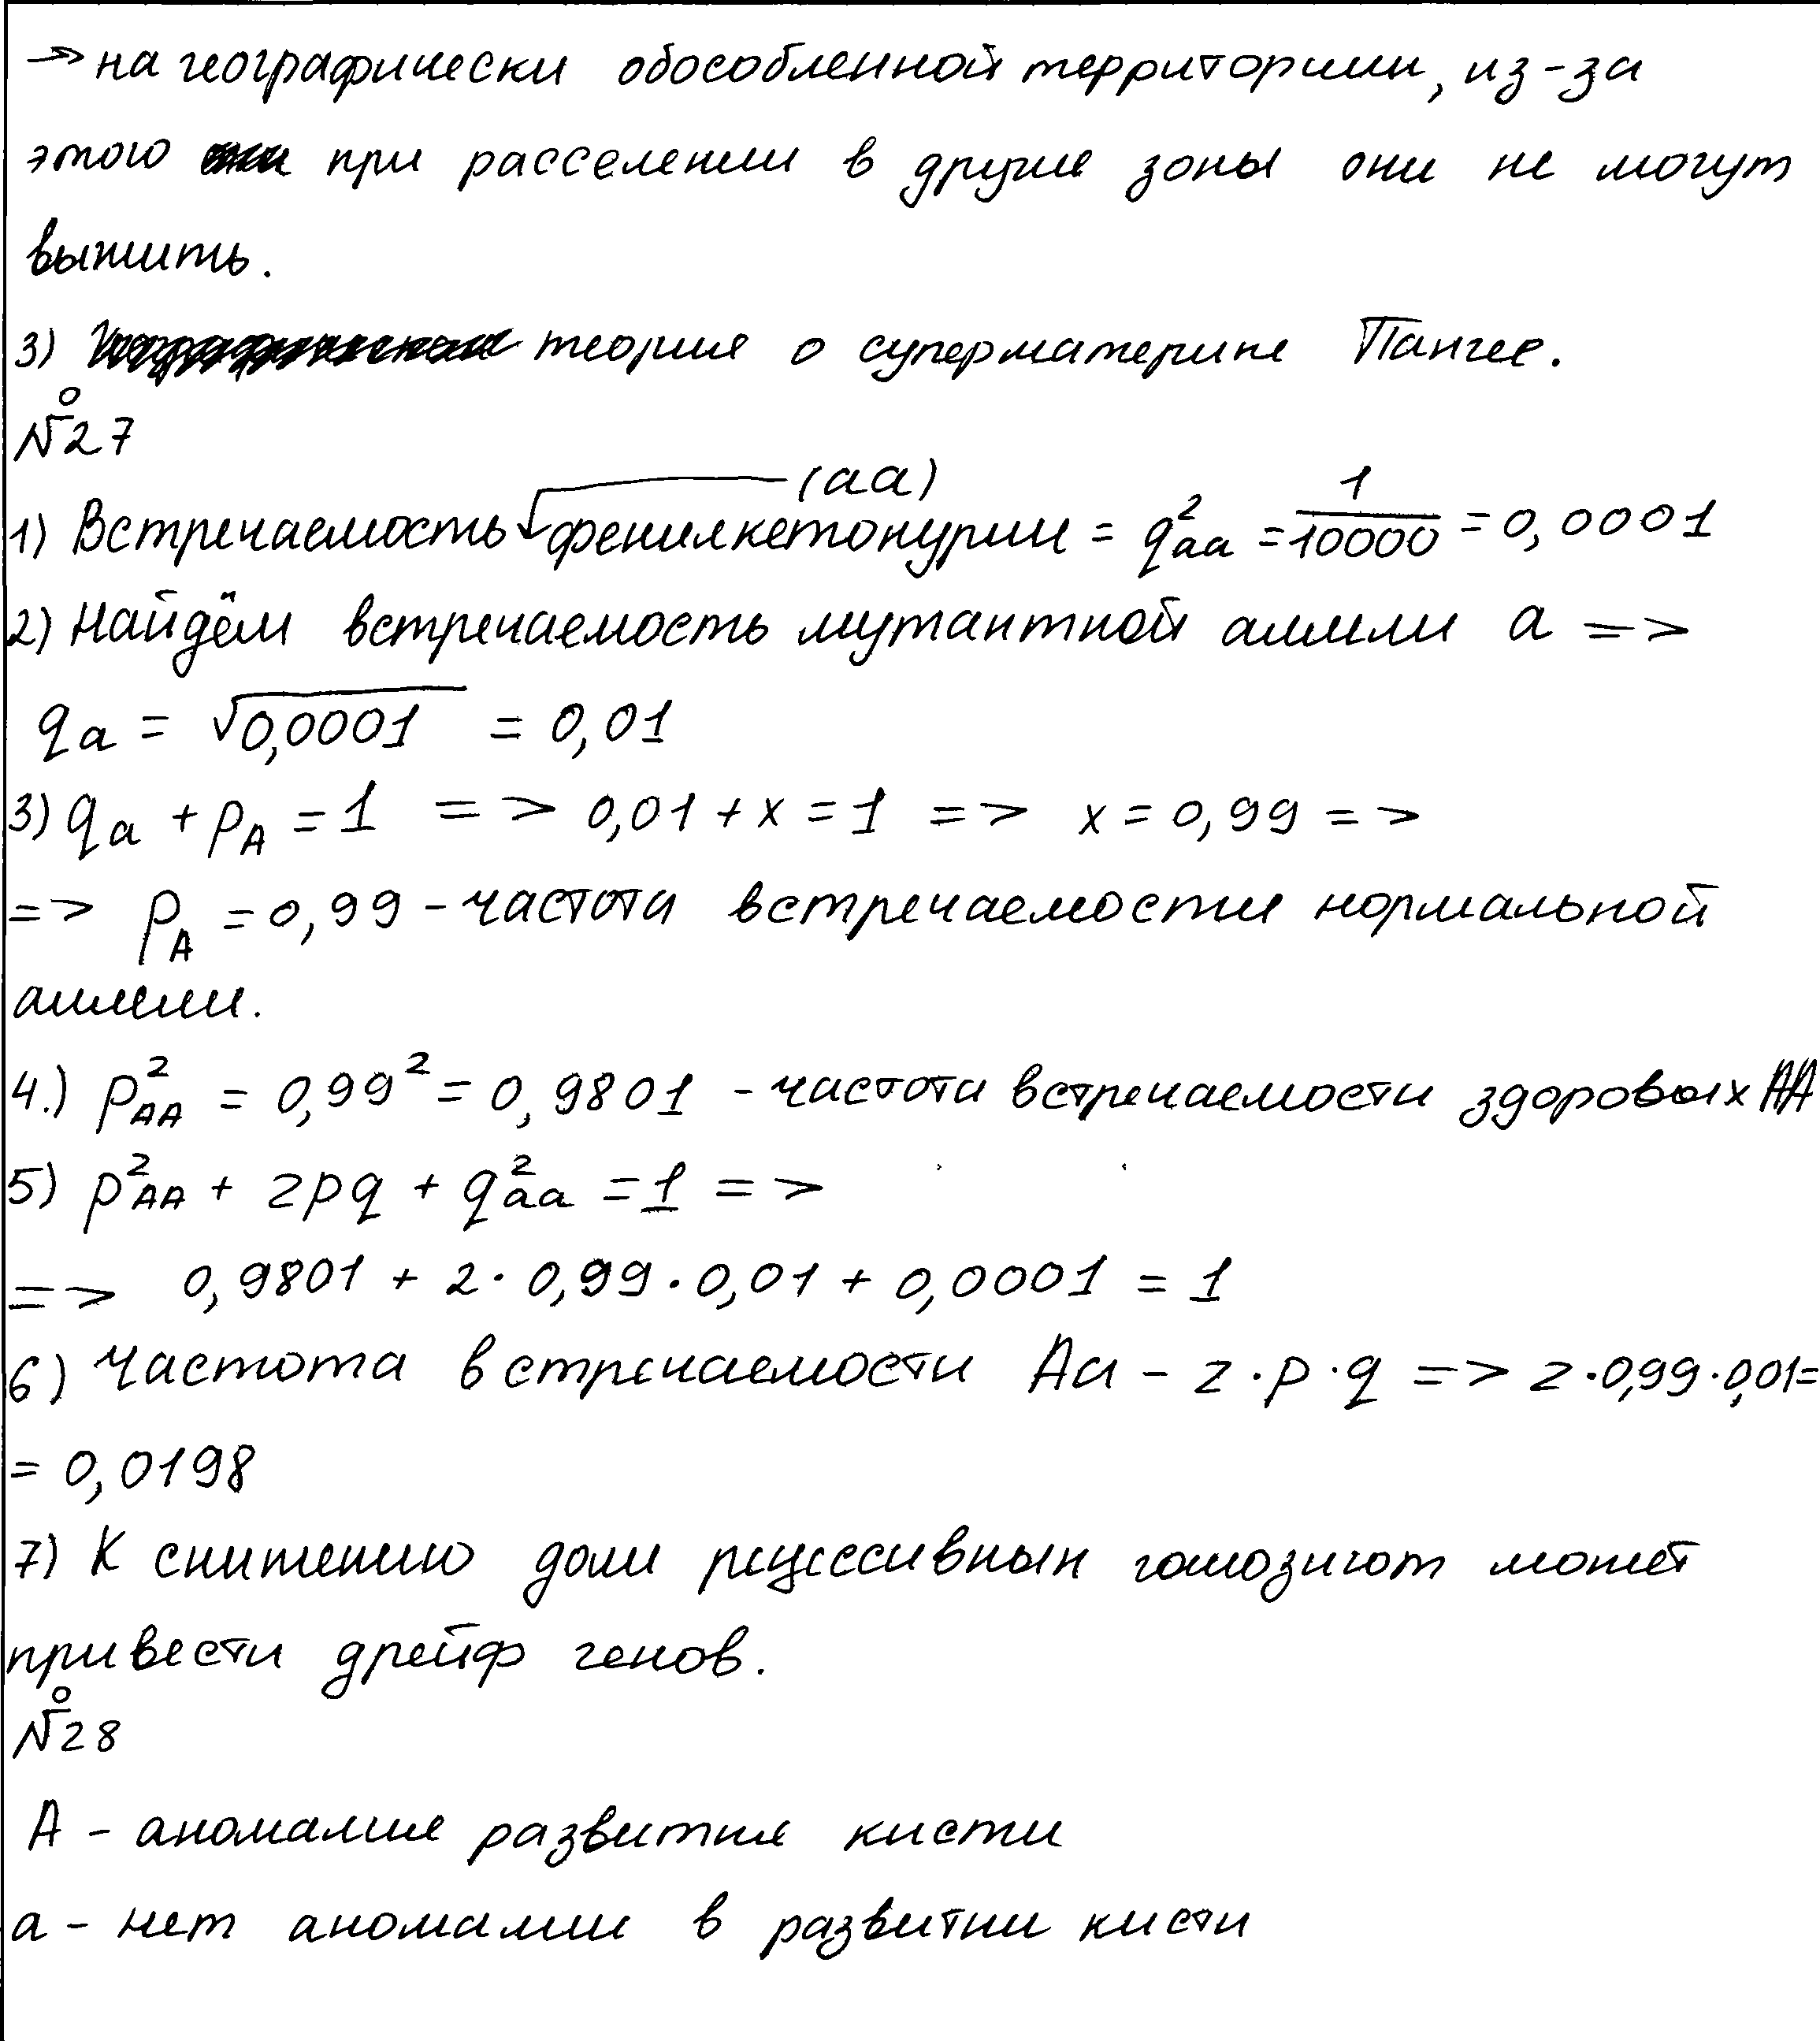 → на географически обособленной территории, из-за
этого при расселении в другие зоны они не могут
выжить.
3) теория о суперматерике Пангее.
№27
(аа)
1) Встречаемость фенилкетонурии = q²аа = 1/10000 = 0,0001
2) Найдём встречаемость мутантной аллели а =>
qа = √0,0001 = 0,01
3) qа + pА = 1 => 0,01 + x = 1 => x = 0,99 =>
=> pА = 0,99 - частота встречаемости нормальной
аллели.
4.) p²АА = 0,99² = 0,9801 - частота встречаемости здоровых АА
5) p²АА + 2pq + q²аа = 1 =>
=> 0,9801 + 2·0,99·0,01 + 0,0001 = 1
6) Частота встречаемости Аа - 2·p·q => 2·0,99·0,01=
= 0,0198
7) К снижению доли рецессивных гомозигот может
привести дрейф генов.
№28
А - аномалия развития кисти
а - нет аномалии в развитии кисти